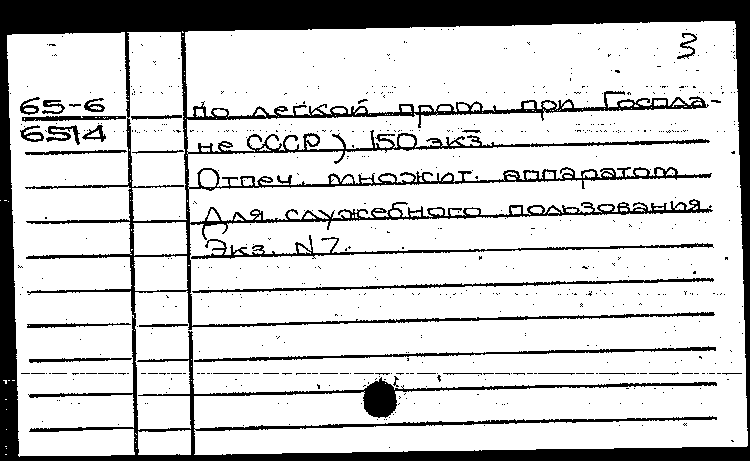 3
65-6 по легкой пром. при Госпла-
6514 не СССР). 150 экз.
Отпеч. множит. аппаратом
Для служебного пользования.
Экз. N7.